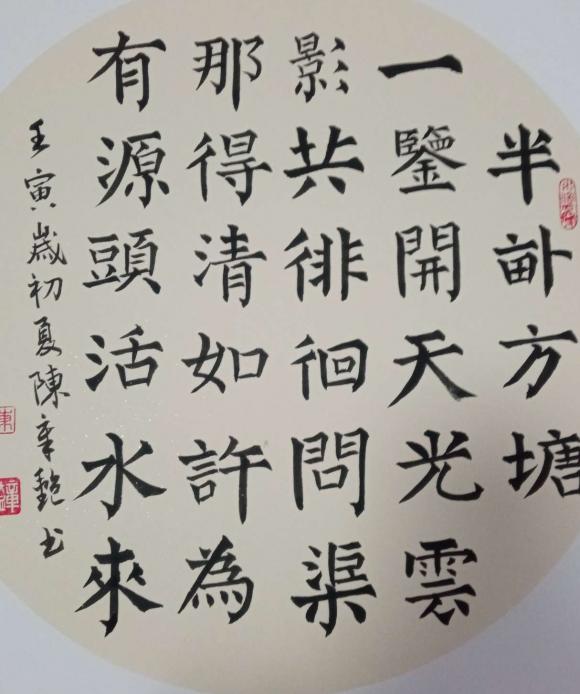 半畝方塘
一鑒開天光雲
影共徘徊問渠
那得清如許為
有源頭活水來
壬寅歲初夏陳章书